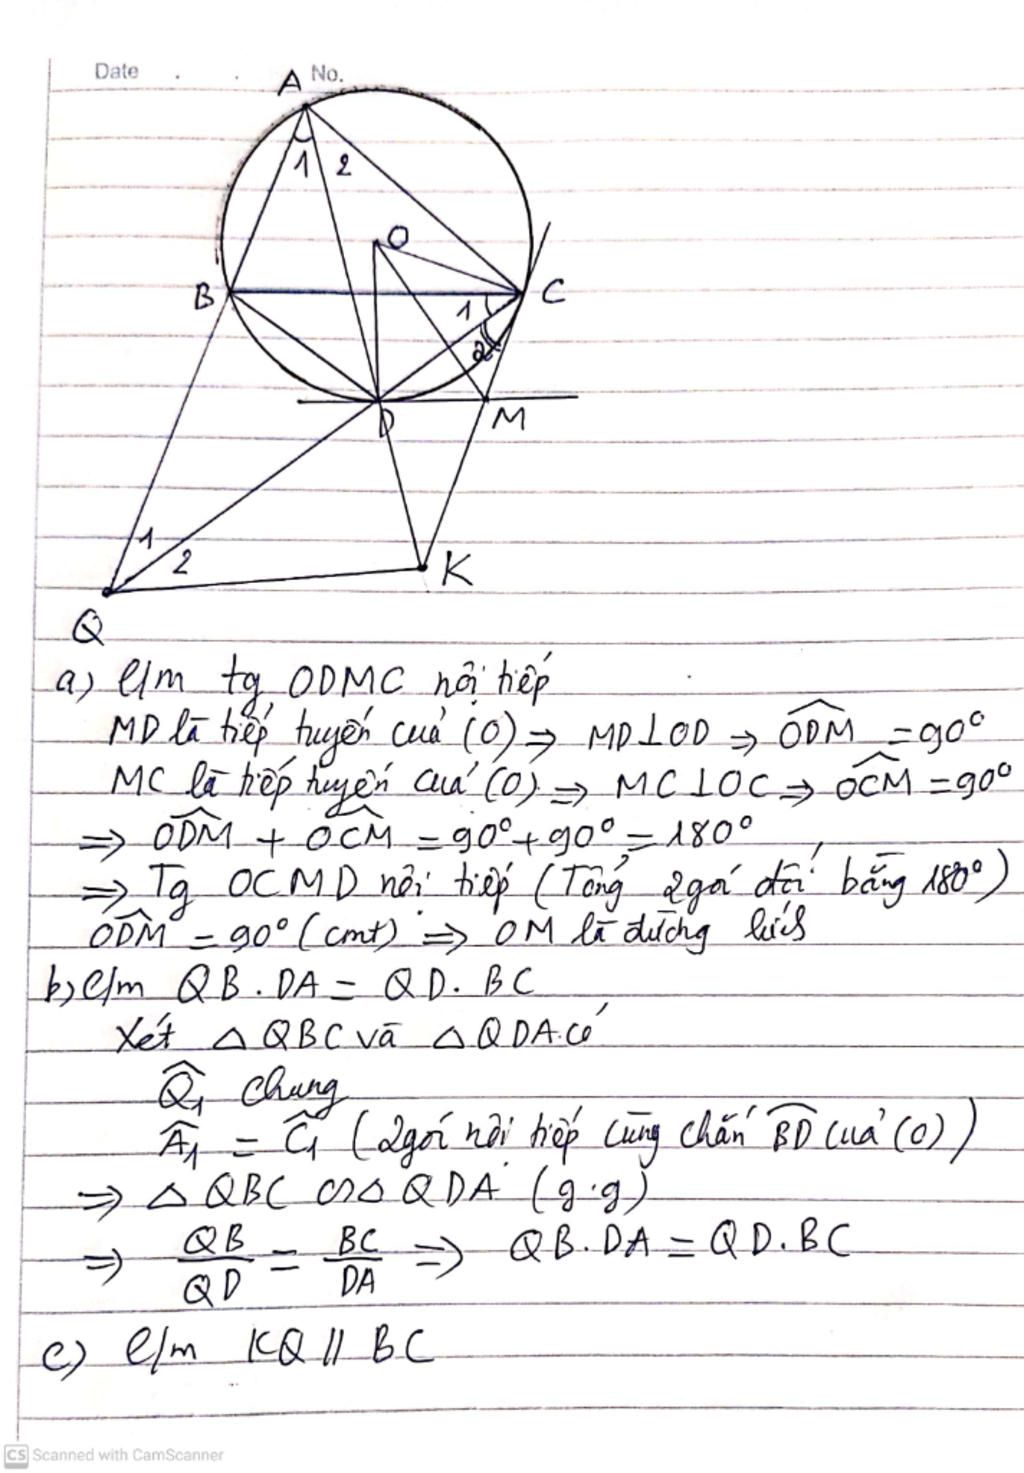 Date . . No.
A
1 2
O
B
C
1
2
D
M
1
2
K
Q
a) c/m tg ODMC nội tiếp
MD là tiếp tuyến của (O) => MD⊥OD => ODM = 90°
MC là tiếp tuyến của (O) => MC⊥OC => OCM = 90°
=> ODM + OCM = 90° + 90° = 180°
=> Tg OCMD nội tiếp (Tổng 2 góc đối bằng 180°)
ODM = 90° (cmt) => OM là đường kính
b) c/m QB.DA = QD.BC
Xét △QBC và △QDA có
Q1 chung
A1 = C1 (2 góc nội tiếp cùng chắn BD của (O))
=> △QBC ∽ △QDA (g.g)
=> QB/QD = BC/DA => QB.DA = QD.BC
c) c/m KQ // BC
CS Scanned with CamScanner